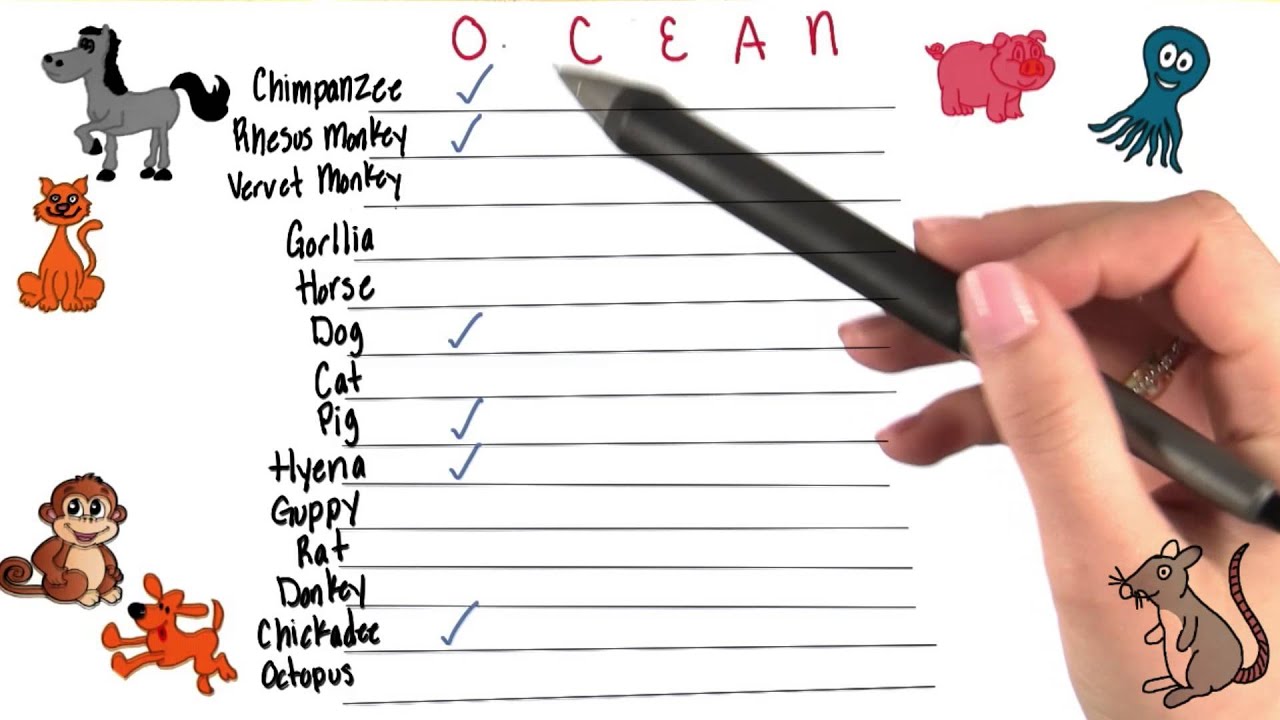 O C E A N
Chimpanzee ✓
Rhesus Monkey ✓
Vervet Monkey
Gorllia
Horse
Dog ✓
Cat
Pig ✓
Hyena ✓
Guppy
Rat
Donkey
Chickadee ✓
Octopus